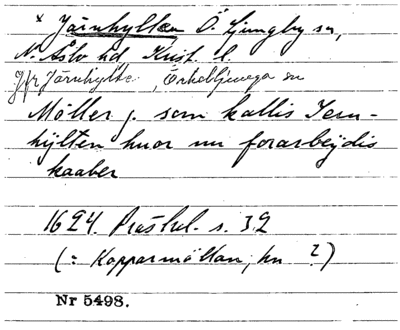 x Järnhylten Ö. Ljungby sn,
N. Åsbo hd Krist. l.
Jfr Järnhylte, Örkelljunga sn
Mölle j. som kallis Jern-
hylten huor nu forarbejdis
kaaber
1624. Præstrel. s. 32
(: Kopparmöllan, hn ?)
Nr 5498.